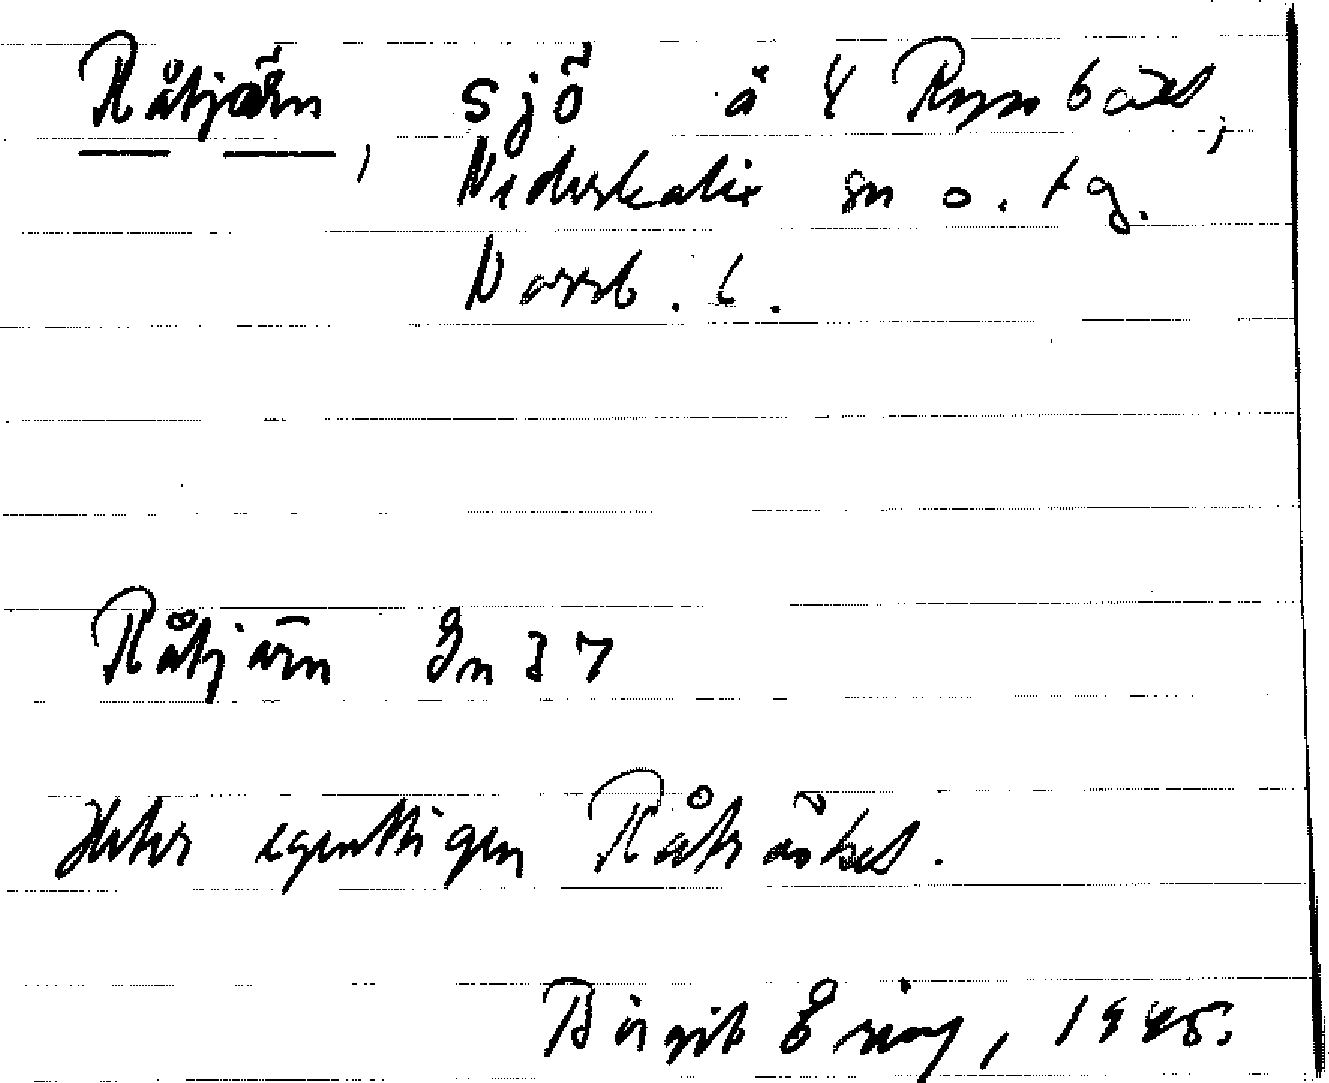 Råtjärn, sjö å Y Rymbäck,
Nederkalix sn o. tg.
Norrb. l.
Råtjärn Gn 37
Heter egentligen Råträsket.
Birgit Ering, 1945.